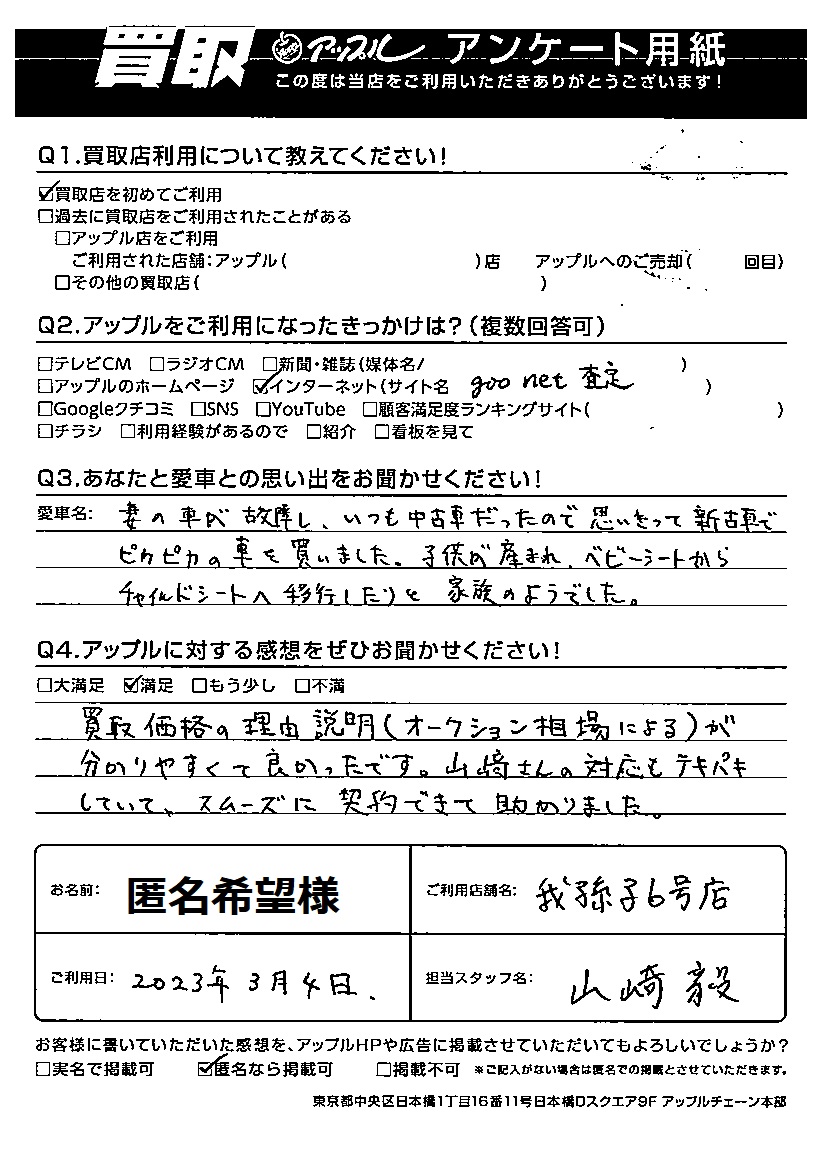 買取 アップル アンケート用紙
この度は当店をご利用いただきありがとうございます!
Q1.買取店利用について教えてください!
☑買取店を初めてご利用
□過去に買取店をご利用されたことがある
□アップル店をご利用
ご利用された店舗:アップル( )店 アップルへのご売却( 回目)
□その他の買取店( )
Q2.アップルをご利用になったきっかけは?(複数回答可)
□テレビCM □ラジオCM □新聞・雑誌(媒体名/ )
□アップルのホームページ ☑インターネット(サイト名 goo net 査定 )
□Googleクチコミ □SNS □YouTube □顧客満足度ランキングサイト( )
□チラシ □利用経験があるので □紹介 □看板を見て
Q3.あなたと愛車との思い出をお聞かせください!
愛車名: 妻の車が故障し、いつも中古車だったので思いきって新古車で
ピカピカの車を買いました。子供が産まれ、ベビーシートから
チャイルドシートへ移行したりと家族のようでした。
Q4.アップルに対する感想をぜひお聞かせください!
□大満足 ☑満足 □もう少し □不満
買取価格の理由説明(オークション相場による)が
分かりやすくて良かったです。山﨑さんの対応もテキパキ
していて、スムーズに契約できて助かりました。
お名前: 匿名希望様 ご利用店舗名: 我孫子6号店
ご利用日: 2023年3月4日. 担当スタッフ名: 山﨑 毅
お客様に書いていただいた感想を、アップルHPや広告に掲載させていただいてもよろしいでしょうか?
□実名で掲載可 ☑匿名なら掲載可 □掲載不可 ※ご記入がない場合は匿名での掲載とさせていただきます。
東京都中央区日本橋1丁目16番11号日本橋Dスクエア9F アップルチェーン本部